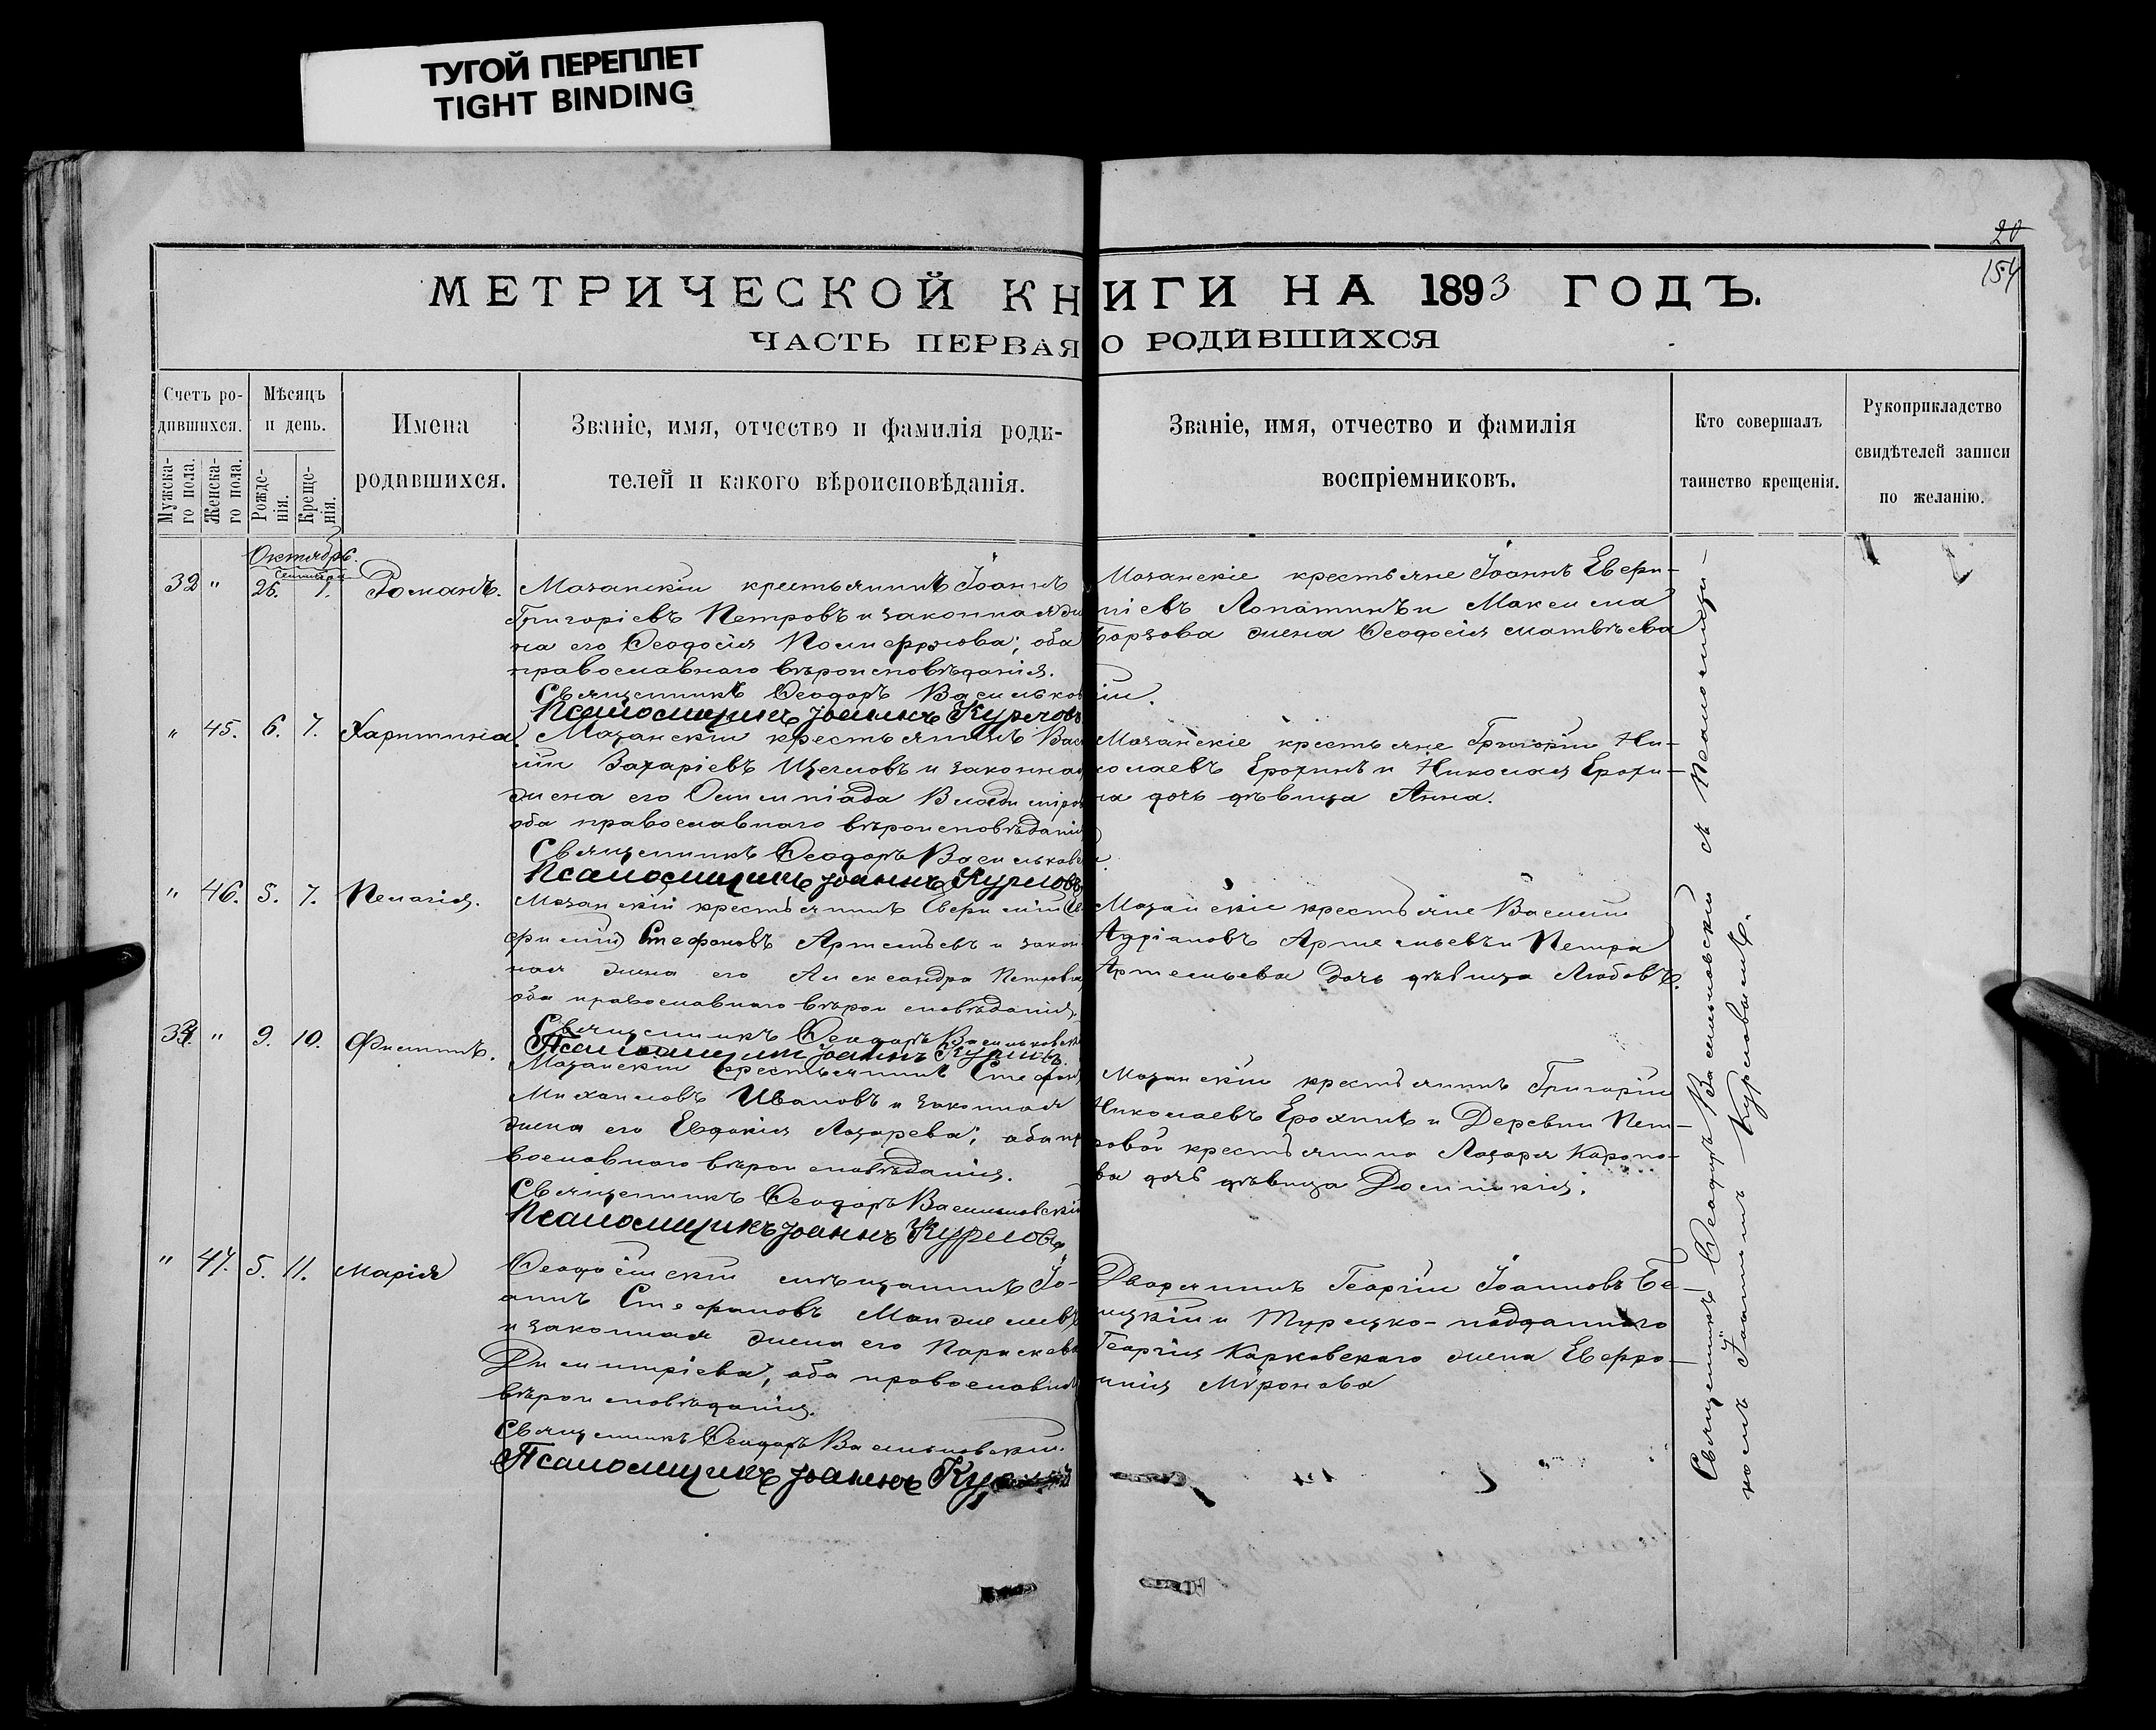 ТУГОЙ ПЕРЕПЛЕТ
TIGHT BINDING
20
154
МЕТРИЧЕСКОЙ КНИГИ НА 1893 ГОДЪ.
ЧАСТЬ ПЕРВАЯ О РОДИВШИХСЯ
Счетъ ро-
дившихся.
Мужска-
го пола.
Женска-
го пола.
Мѣсяцъ
и день.
Рожде-
нія.
Креще-
нія.
Имена
родившихся.
Званіе, имя, отчество и фамилія роди-
телей и какого вѣроисповѣданія.
Званіе, имя, отчество и фамилія
воспріемниковъ.
Кто совершалъ
таинство крещенія.
Рукоприкладство
свидѣтелей записи
по желанію.
Октябрь.
Сентября
32 " 26. 1. Романъ.
Мазанскій крестьянинъ Іоаннъ
Григоріевъ Петровъ и законная же
на его Ѳеодосія; оба
православнаго вѣроисповѣданія.
Священникъ Ѳеодоръ Васильковскій.
Псаломщикъ Іоаннъ Курловъ
Мазанскіе крестьяне Іоаннъ Евфи-
міевъ Лопатинъ и Максима
Борзова жена Ѳеодосія Матвѣева
" 45. 6. 7. Харитинія.
Мазанскій крестьянинъ Васи
лій Захаріевъ Щегловъ и законная
жена его Олимпіада Владиміров
оба православнаго вѣроисповѣданія
Священникъ Ѳеодоръ Васильковск
Псаломщикъ Іоаннъ Курловъ
Мазанскіе крестьяне Григорій Ни-
колаевъ Ерохинъ и Николая Ерохи-
на дочь дѣвица Анна.
" 46. 5. 7. Пелагія.
Мазанскій крестьянинъ
Стефановъ Артемьевъ и закон
ная жена его Александра Петрова,
оба православнаго вѣроисповѣданія.
Священникъ Ѳеодоръ Васильковскі
Псаломщикъ Іоаннъ Курловъ.
Мазанскіе крестьяне Василій
Адріановъ Артемьевъ и Петра
Артемьева дочь дѣвица Любовь.
33. " 9. 10. Филиппъ.
Мазанскій крестьянинъ Стефанъ
Михаиловъ Ивановъ и законная
жена его Евдокія Лазарева; оба пр
вославнаго вѣроисповѣданія.
Священникъ Ѳеодоръ Васильковскій
Псаломщикъ Іоаннъ Курловъ
Мазанскій крестьянинъ Григорій
Николаевъ Ерохинъ и Деревни Пет-
ровой крестьянина Лазаря
дочь дѣвица Домникія.
" 47. 5. 11. Марія
Ѳеодосійскій мѣщанинъ Іо-
аннъ Стефановъ
и законная жена его Параскева
Димитріева, оба православнаго
вѣроисповѣданія.
Священникъ Ѳеодоръ Васильковскій.
Псаломщикъ Іоаннъ Курловъ
Дворянинъ Георгій Іоанновъ Бе-
и Турецко-подданнаго
Георгія Карковскаго жена Евфро-
Миронова
Священникъ Ѳеодоръ Васильковскій съ Псаломщи-
комъ Іоанномъ Курловымъ.